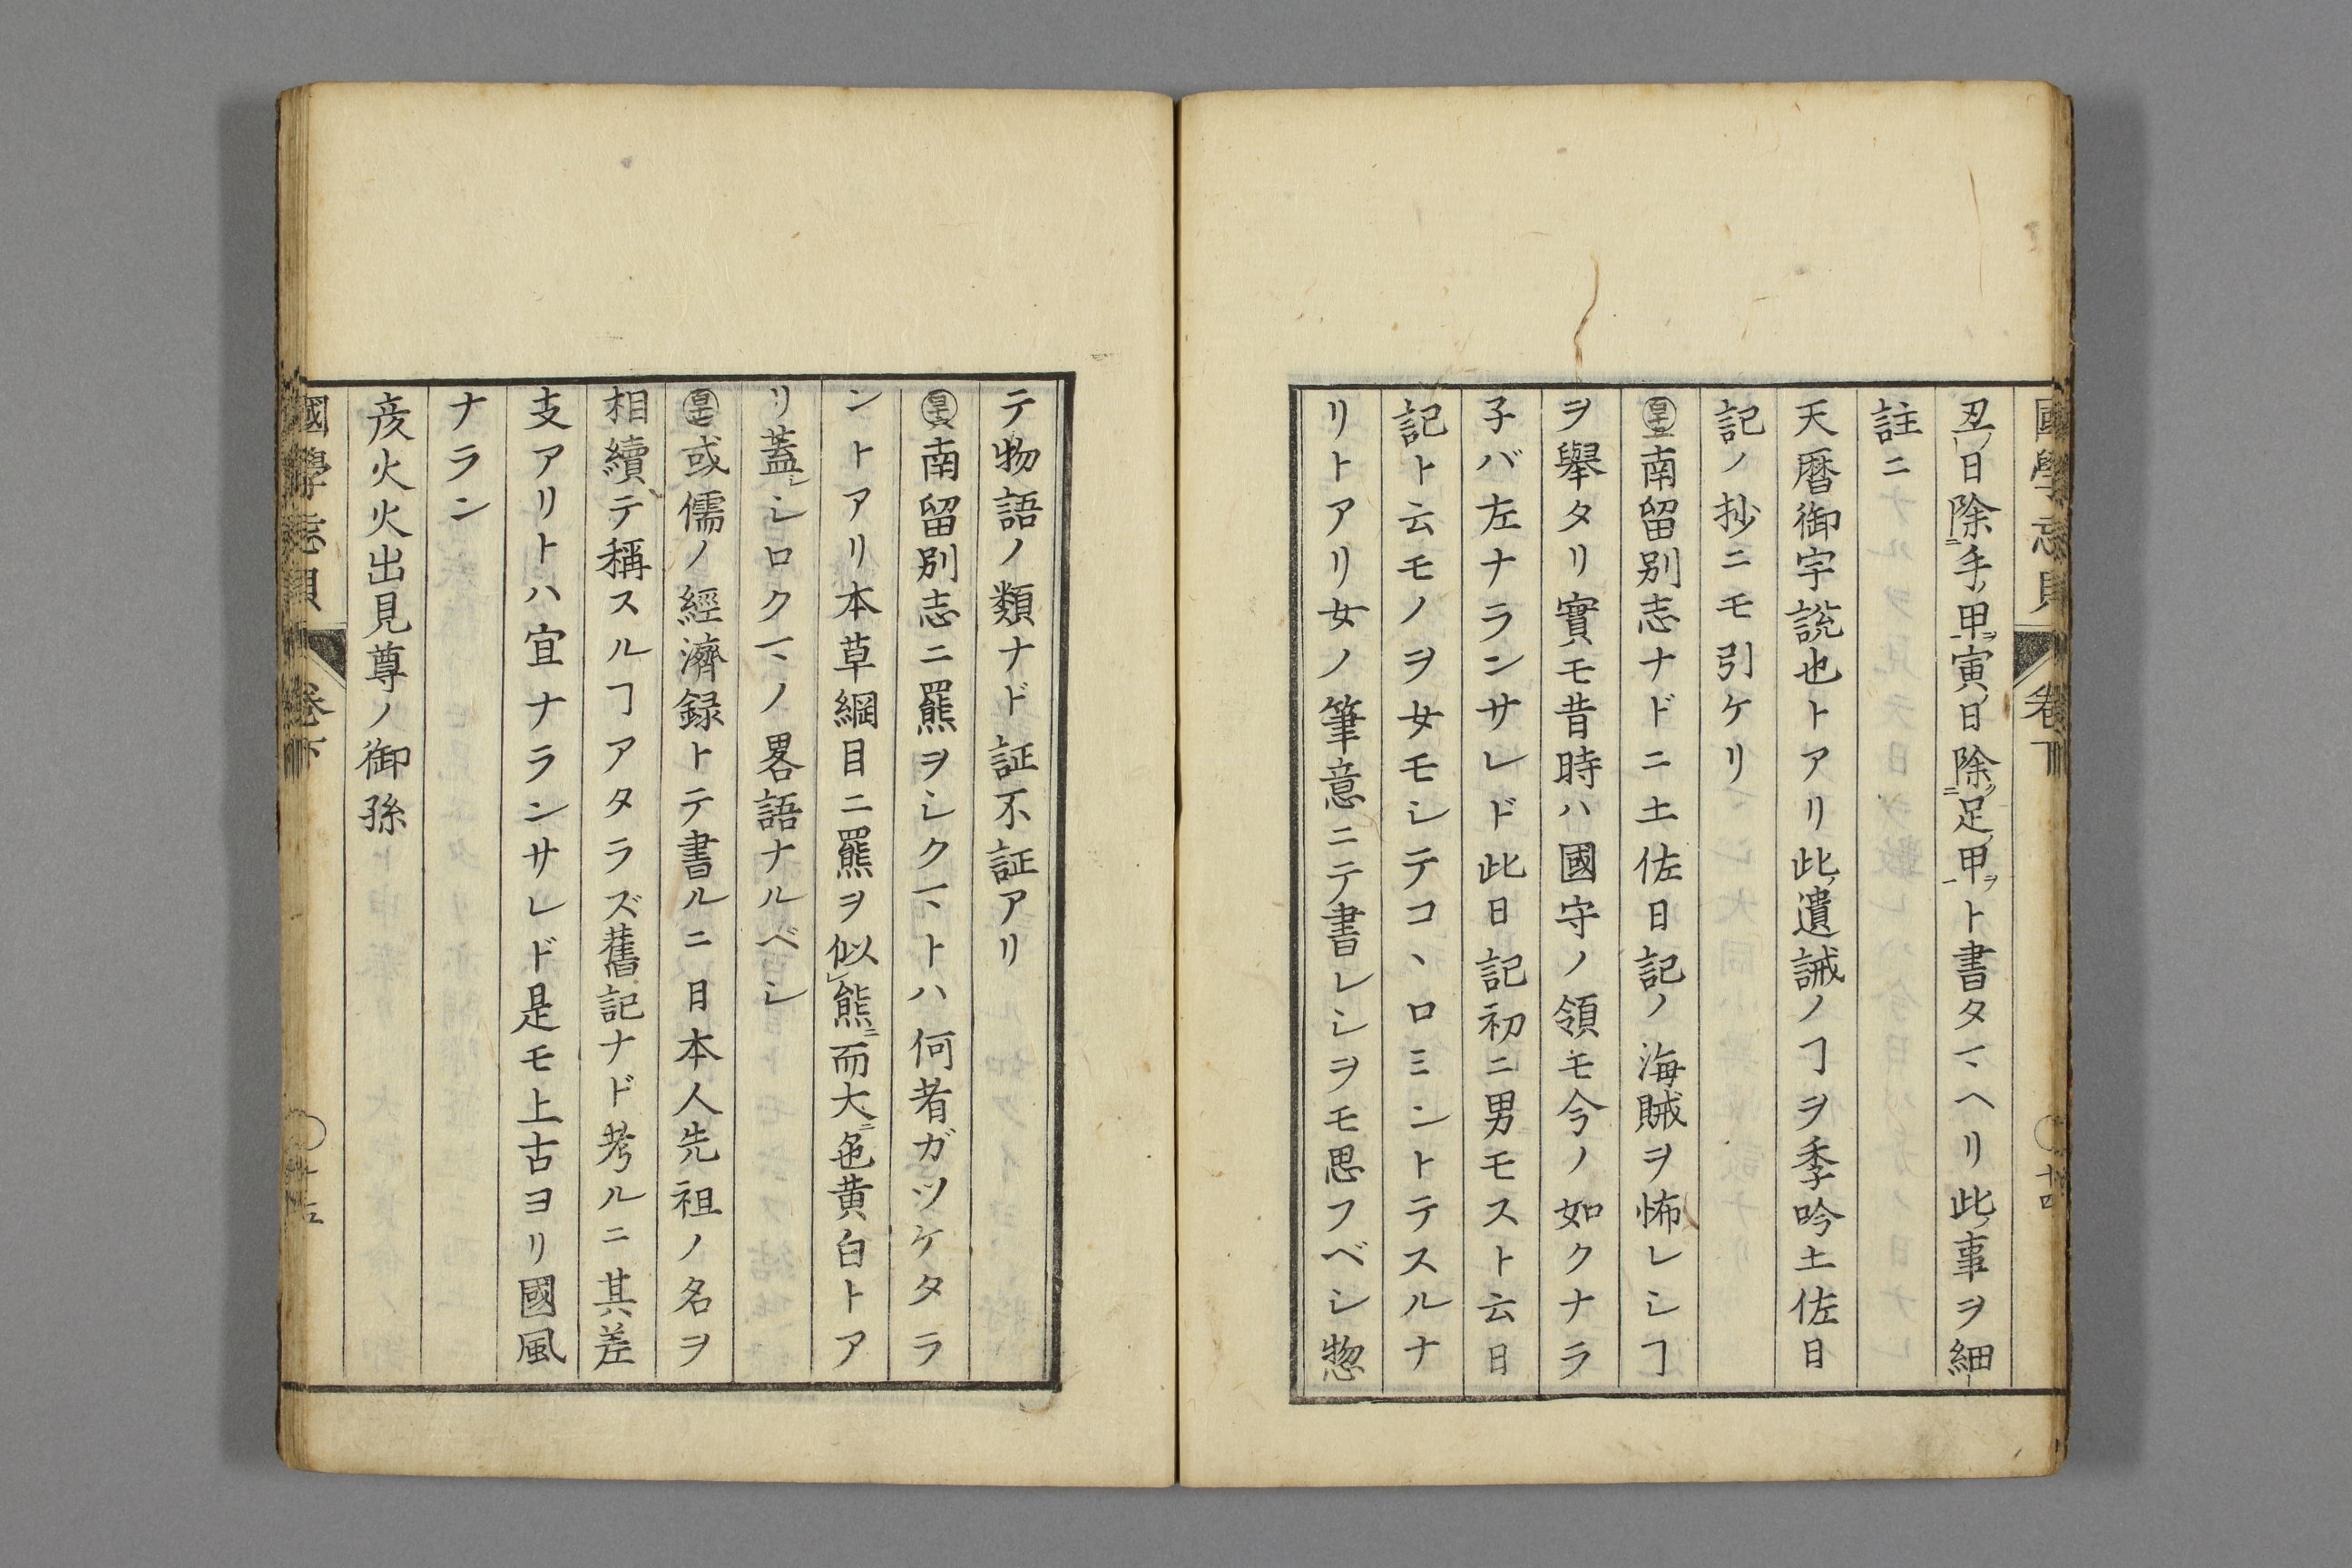 國學忘貝 卷下 十四
丑ノ日除ニ手ノ甲ヲ寅ノ日除ニ足ノ甲ヲト書タマヘリ此ノ事ヲ細
註ニ
天暦御宇説也トアリ此ノ遺誡ノヿヲ季吟土佐日
記ノ抄ニモ引ケリ
百十五南留別志ナドニ土佐日記ノ海賊ヲ怖レシヿ
ヲ擧タリ實モ昔時ハ國守ノ領モ今ノ如クナラ
子バ左ナランサレド此日記初ニ男モスト云日
記ト云モノヲ女モシテコヽロミントテスルナ
リトアリ女ノ筆意ニテ書レシヲモ思フベシ惣
テ物語ノ類ナド証不証アリ
百十六南留別志ニ羆ヲシクマトハ何者ガツケタラ
ントアリ本草綱目ニ羆ヲ似レ熊ニ而大ニ色黄白トア
リ蓋シシロクマノ畧語ナルベシ
百十七或儒ノ經濟録トテ書ルニ日本人先祖ノ名ヲ
相續テ稱スルヿアタラズ舊記ナド考ルニ其差
支アリトハ宜ナランサレド是モ上古ヨリ國風
ナラン
彦火火出見尊ノ御孫
國學忘貝 卷下 十五